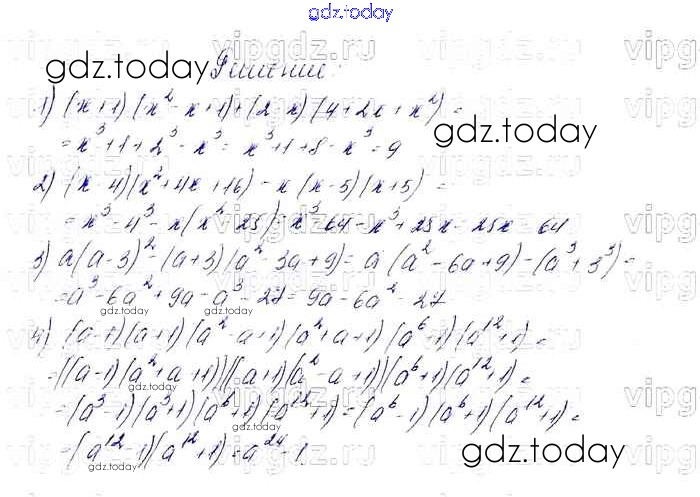 gdz.today
vipgdz.ru
gdz.today Решение:
1) (x+1)(x²-x+1)+(2-x)(4+2x+x²)=
=x³+1+2³-x³=x³+1+8-x³=9
gdz.today
2) (x-4)(x²+4x+16)-x(x-5)(x+5)=
=x³-4³-x(x²-25)=x³-64-x³+25x=25x-64
3) a(a-3)²-(a+3)(a²-3a+9)=a(a²-6a+9)-(a³+3³)=
=a³-6a²+9a-a³-27=9a-6a²-27
4) (a-1)(a+1)(a²-a+1)(a²+a+1)(a⁶+1)(a¹²+1)=
=((a-1)(a²+a+1))((a+1)(a²-a+1))(a⁶+1)(a¹²+1)=
=(a³-1)(a³+1)(a⁶+1)(a¹²+1)=(a⁶-1)(a⁶+1)(a¹²+1)=
=(a¹²-1)(a¹²+1)=a²⁴-1.
gdz.today